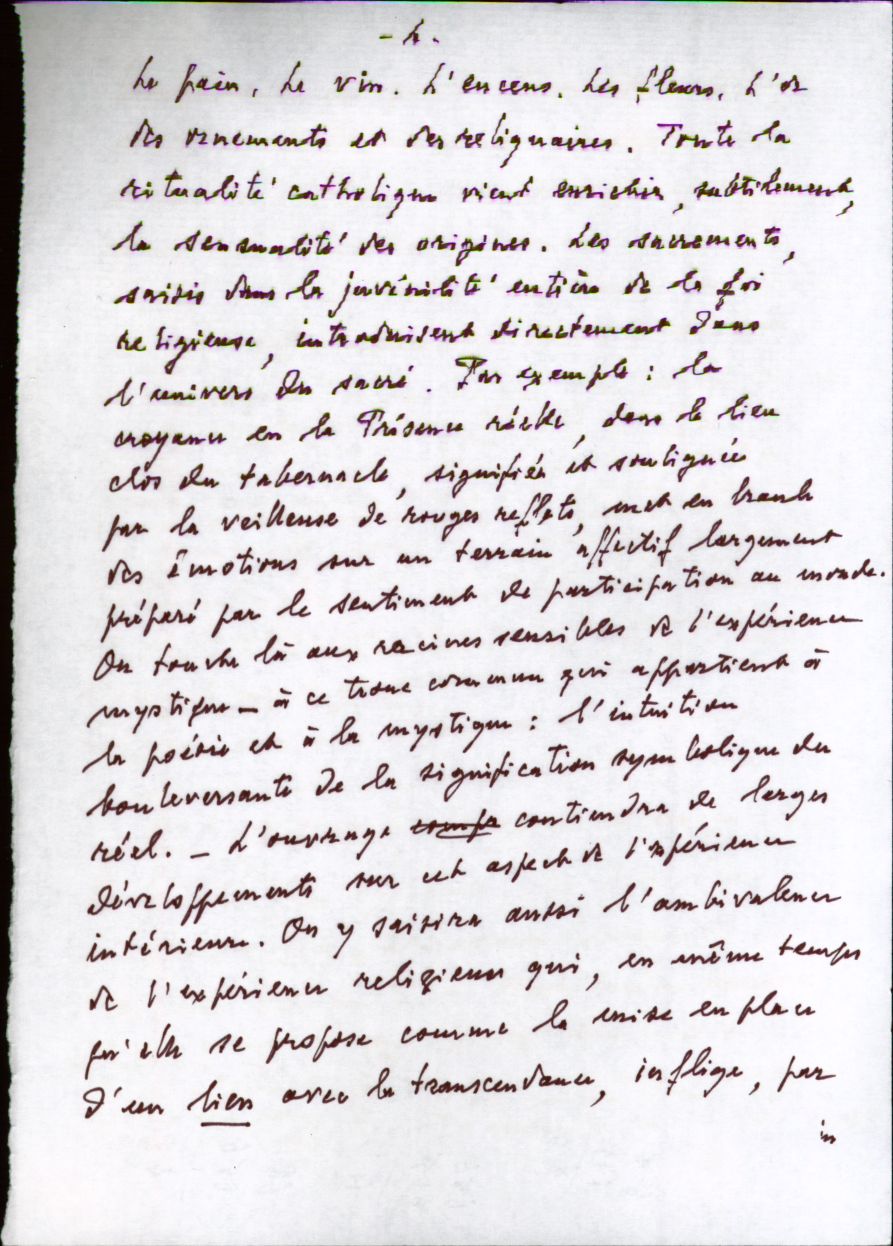 - 4.
Le pain. Le vin. L'encens. Les fleurs. L'or
des ornements et des reliquaires. Toute la
ritualité catholique vient enrichir, subtilement,
la sensualité des origines. Les sacrements,
saisis dans la juvénilité entière de la foi
religieuse, introduisent directement dans
l'univers du sacré. Par exemple : la
croyance en la Présence réelle, dans le lieu
clos du tabernacle, signifiée et soulignée
par la veilleuse de rouges reflets, met en branle
des émotions sur un terrain affectif largement
préparé par le sentiment de participation au monde.
On touche là aux racines sensibles de l'expérience
mystique – à ce tronc commun qui appartient à
la poésie et à la mystique : l'intuition
bouleversante de la signification symbolique du
réel. – L'ouvrage contiendra de larges
développements sur cet aspect de l'expérience
intérieure. On y saisira aussi l'ambivalence
de l'expérience religieuse qui, en même temps
qu'elle se propose comme la mise en place
d'un lien avec la transcendance, inflige, par